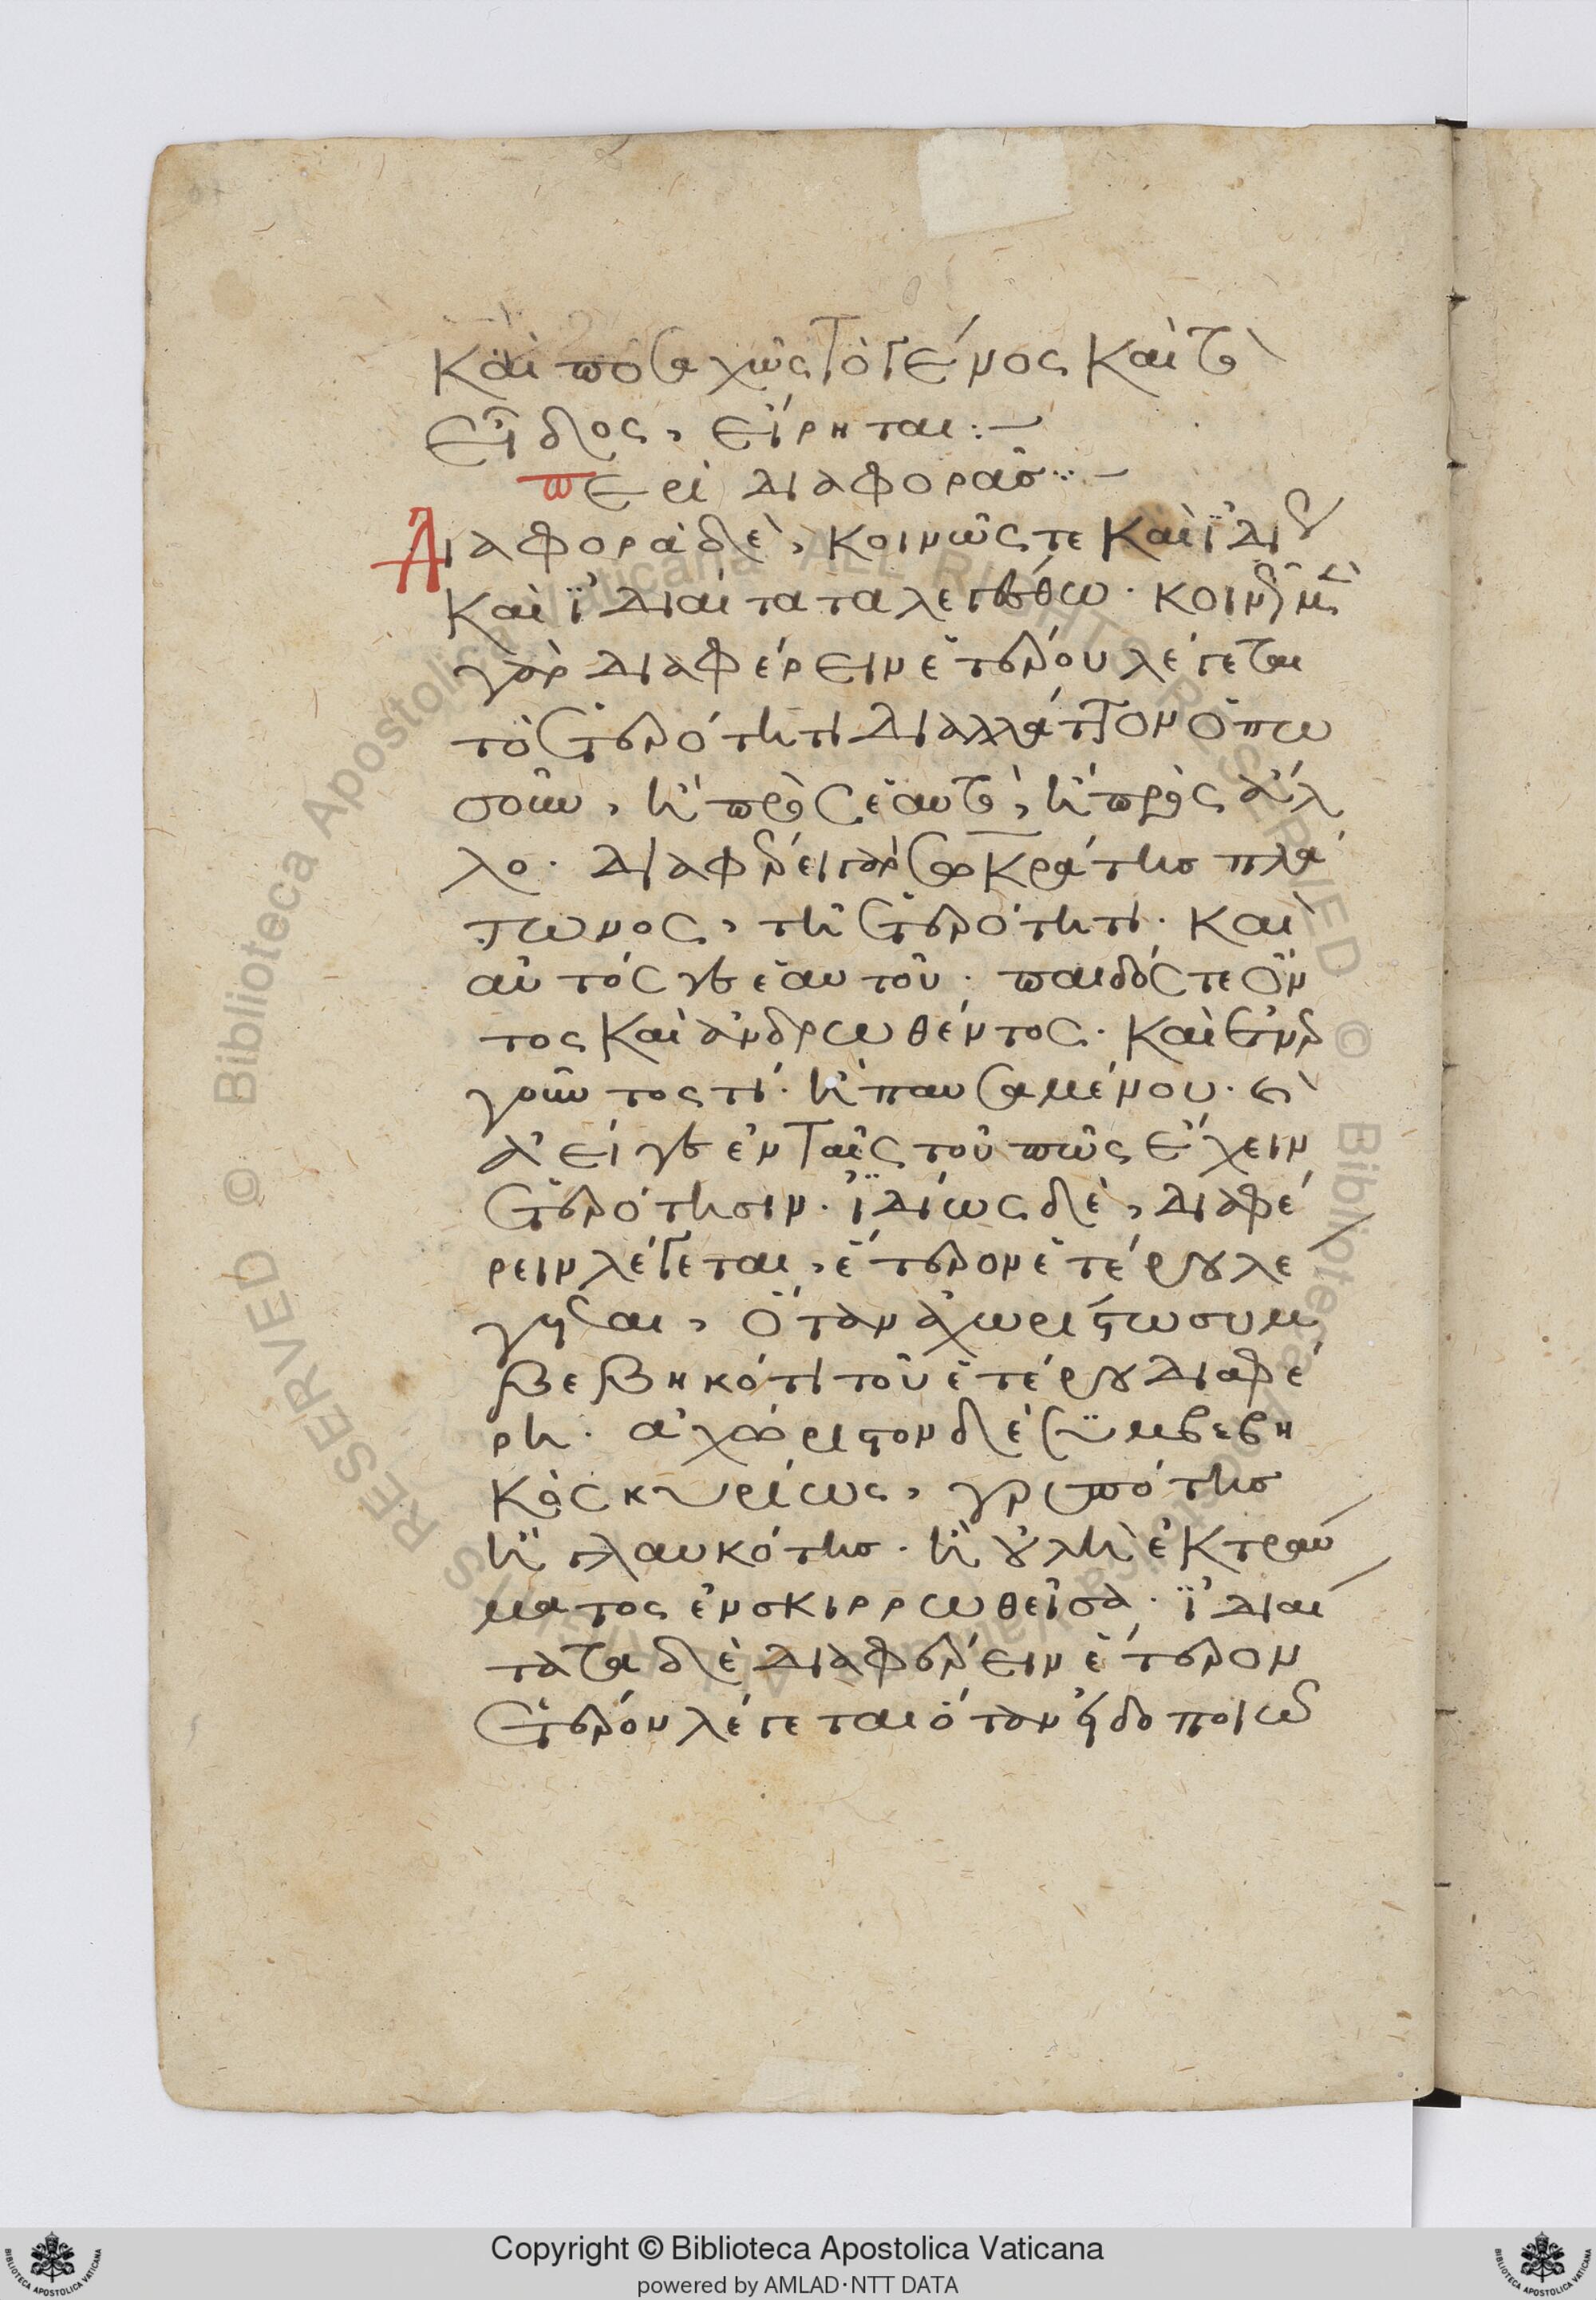 Καὶ ποσαχῶς τὸ γένος καὶ τὸ
εἶδος, εἴρηται:—
περὶ διαφορᾶσ:—
Διαφορὰ δὲ, κοινῶς τε καὶ ἰδίως
καὶ ἰδιαίτατα λεγέσθω· κοινῶς μὲν
γὰρ διαφέρειν ἕτερον ἑτέρου λέγεται
τὸ ἑτερότητι διαλλάττον ὅπω
σοῦν, ἢ πρὸς ἑαυτὸ, ἢ πρὸς ἄλ
λο· διαφέρει γὰρ σωκράτησ πλά
τωνος, τῇ ἑτερότητι· καὶ
αὐτός γε ἑαυτοῦ· παιδός τε ὄν
τος καὶ ἀνδρωθέντος· καὶ ἐνερ
γοῦντος τί· ἢ παυσαμένου· καὶ
ἀεί γε ἐν ταῖς τοῦ πῶς ἔχειν
ἑτερότησιν· ἰδίως δὲ, διαφέ
ρειν λέγεται, ἕτερον ἑτέρου λέ
γηται, ὅταν ἀχωρίστω συμ
βεβηκότι τοῦ ἑτέρου διαφέ
ρη· ἀχώριστον δὲ συμβεβη
κὸς κυρίως, γρυπότησ
ἢ γλαυκότησ· ἢ οὐλὴ ἐκ τραύ
ματος ἐνσκιρρωθεῖσα· ἰδιαί
τατα δὲ διαφέρειν ἕτερον
ἑτέρου λέγεται ὅταν εἰδοποιῶ
Copyright © Biblioteca Apostolica Vaticana
powered by AMLAD·NTT DATA